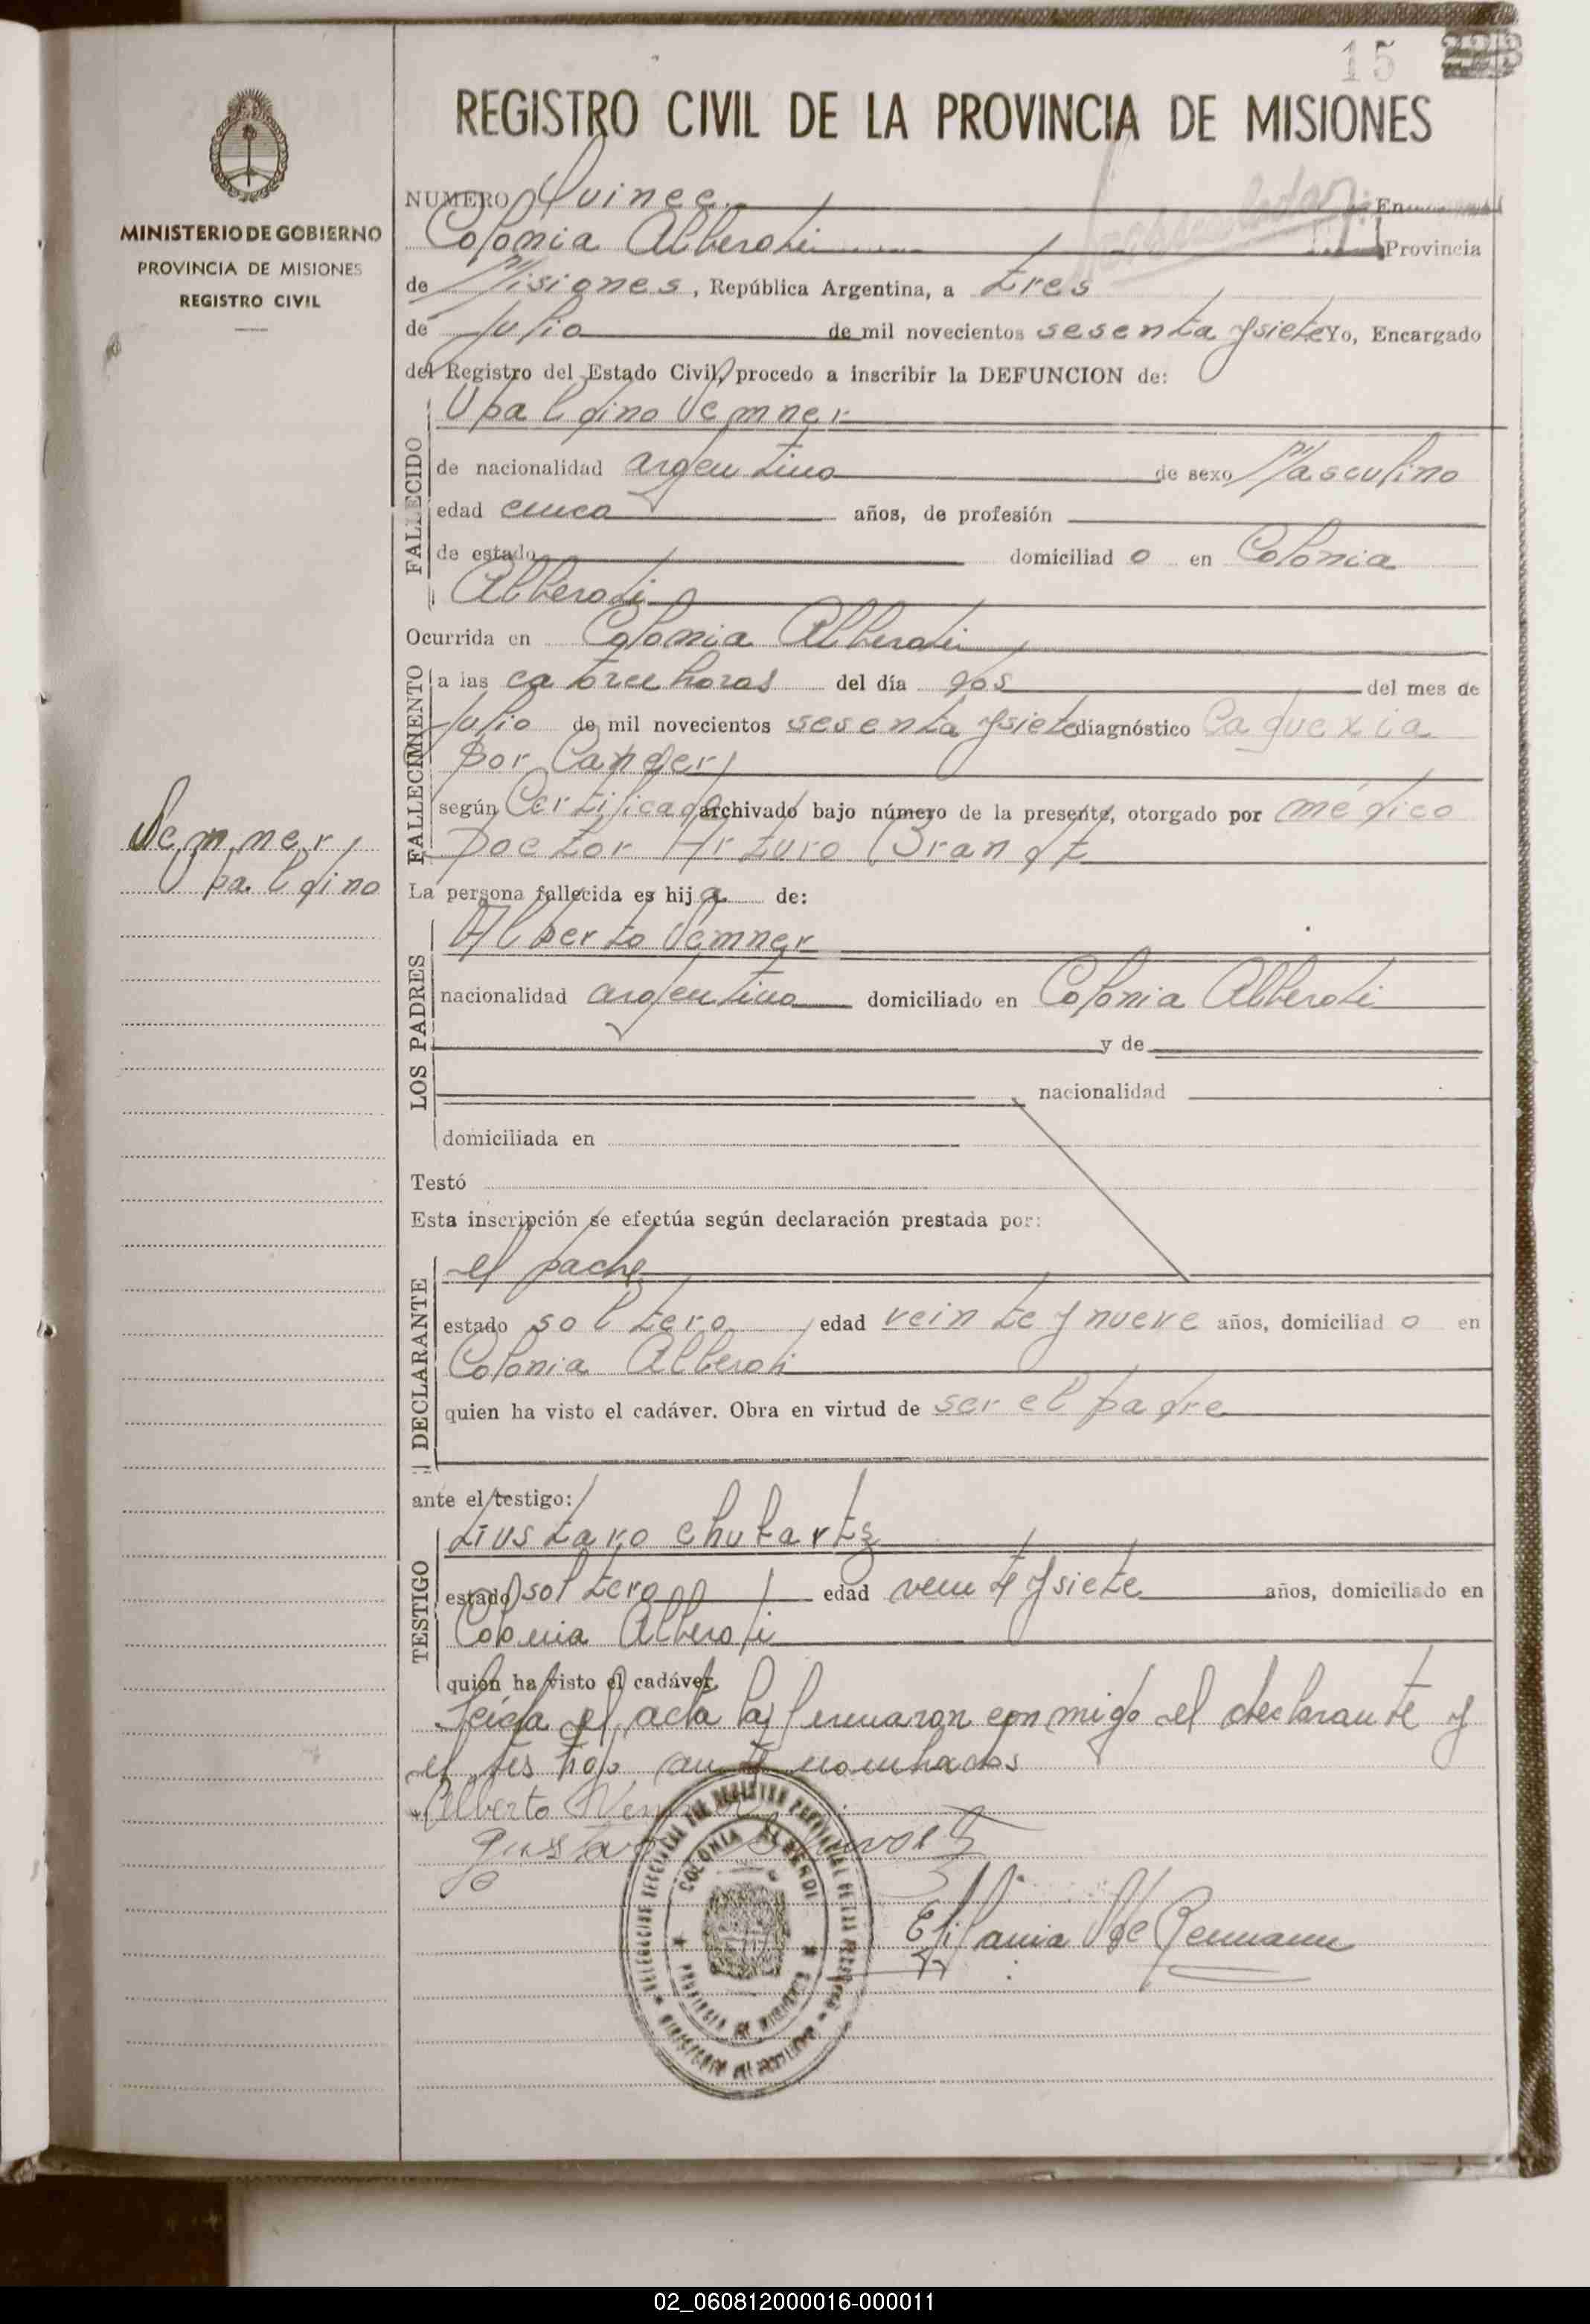 15
REGISTRO CIVIL DE LA PROVINCIA DE MISIONES
MINISTERIO DE GOBIERNO
PROVINCIA DE MISIONES
REGISTRO CIVIL
NUMERO Quince En
Colonia Alberdi Provincia
de Misiones, República Argentina, a tres
de Julio de mil novecientos sesenta y siete Yo, Encargado
del Registro del Estado Civil, procedo a inscribir la DEFUNCION de:
FALLECIDO
Ubaldino Vemner
de nacionalidad argentino de sexo Masculino
edad cinco años, de profesión
de estado domiciliad o en Colonia
Alberdi
Ocurrida en Colonia Alberdi
FALLECIMIENTO
a las catorce horas del día dos del mes de
Julio de mil novecientos sesenta y siete diagnóstico Caquexia
por Cancer
según Certificado archivado bajo número de la presente, otorgado por médico
Doctor Arturo Brandt
Vemner,
Ubaldino
La persona fallecida es hij a de:
LOS PADRES
Alberto Vemner
nacionalidad argentino domiciliado en Colonia Alberdi
y de
nacionalidad
domiciliada en
Testó
Esta inscripción se efectúa según declaración prestada por:
DECLARANTE
el padre
estado soltero, edad veinte y nueve años, domiciliad o en
Colonia Alberdi
quien ha visto el cadáver. Obra en virtud de ser el padre
ante el testigo:
TESTIGO
Gustavo Chubartz
estado soltero edad veinte y siete años, domiciliado en
Colonia Alberdi
quien ha visto el cadáver.
Leída el acta la firmaron conmigo el declarante y
el testigo ante nombrados
Alberto
Gustavo
COLONIA ALBERDI
PROVINCIA DE MISIONES
Elifania V de Germann
02_060812000016-000011